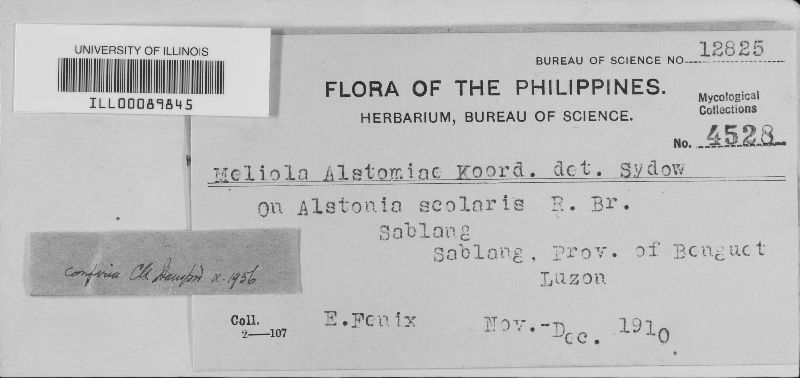 UNIVERSITY OF ILLINOIS
ILL00089845
BUREAU OF SCIENCE NO. 12825
FLORA OF THE PHILIPPINES.
HERBARIUM, BUREAU OF SCIENCE.
Mycological
Collections
No. 4528
Meliola Alstomiae Koord. det. Sydow
On Alstonia scolaris R. Br.
Sablang
Sablang, Prov. of Benguet
Luzon
1956
Coll. E.Fenix Nov.-Dec. 1910
2—107